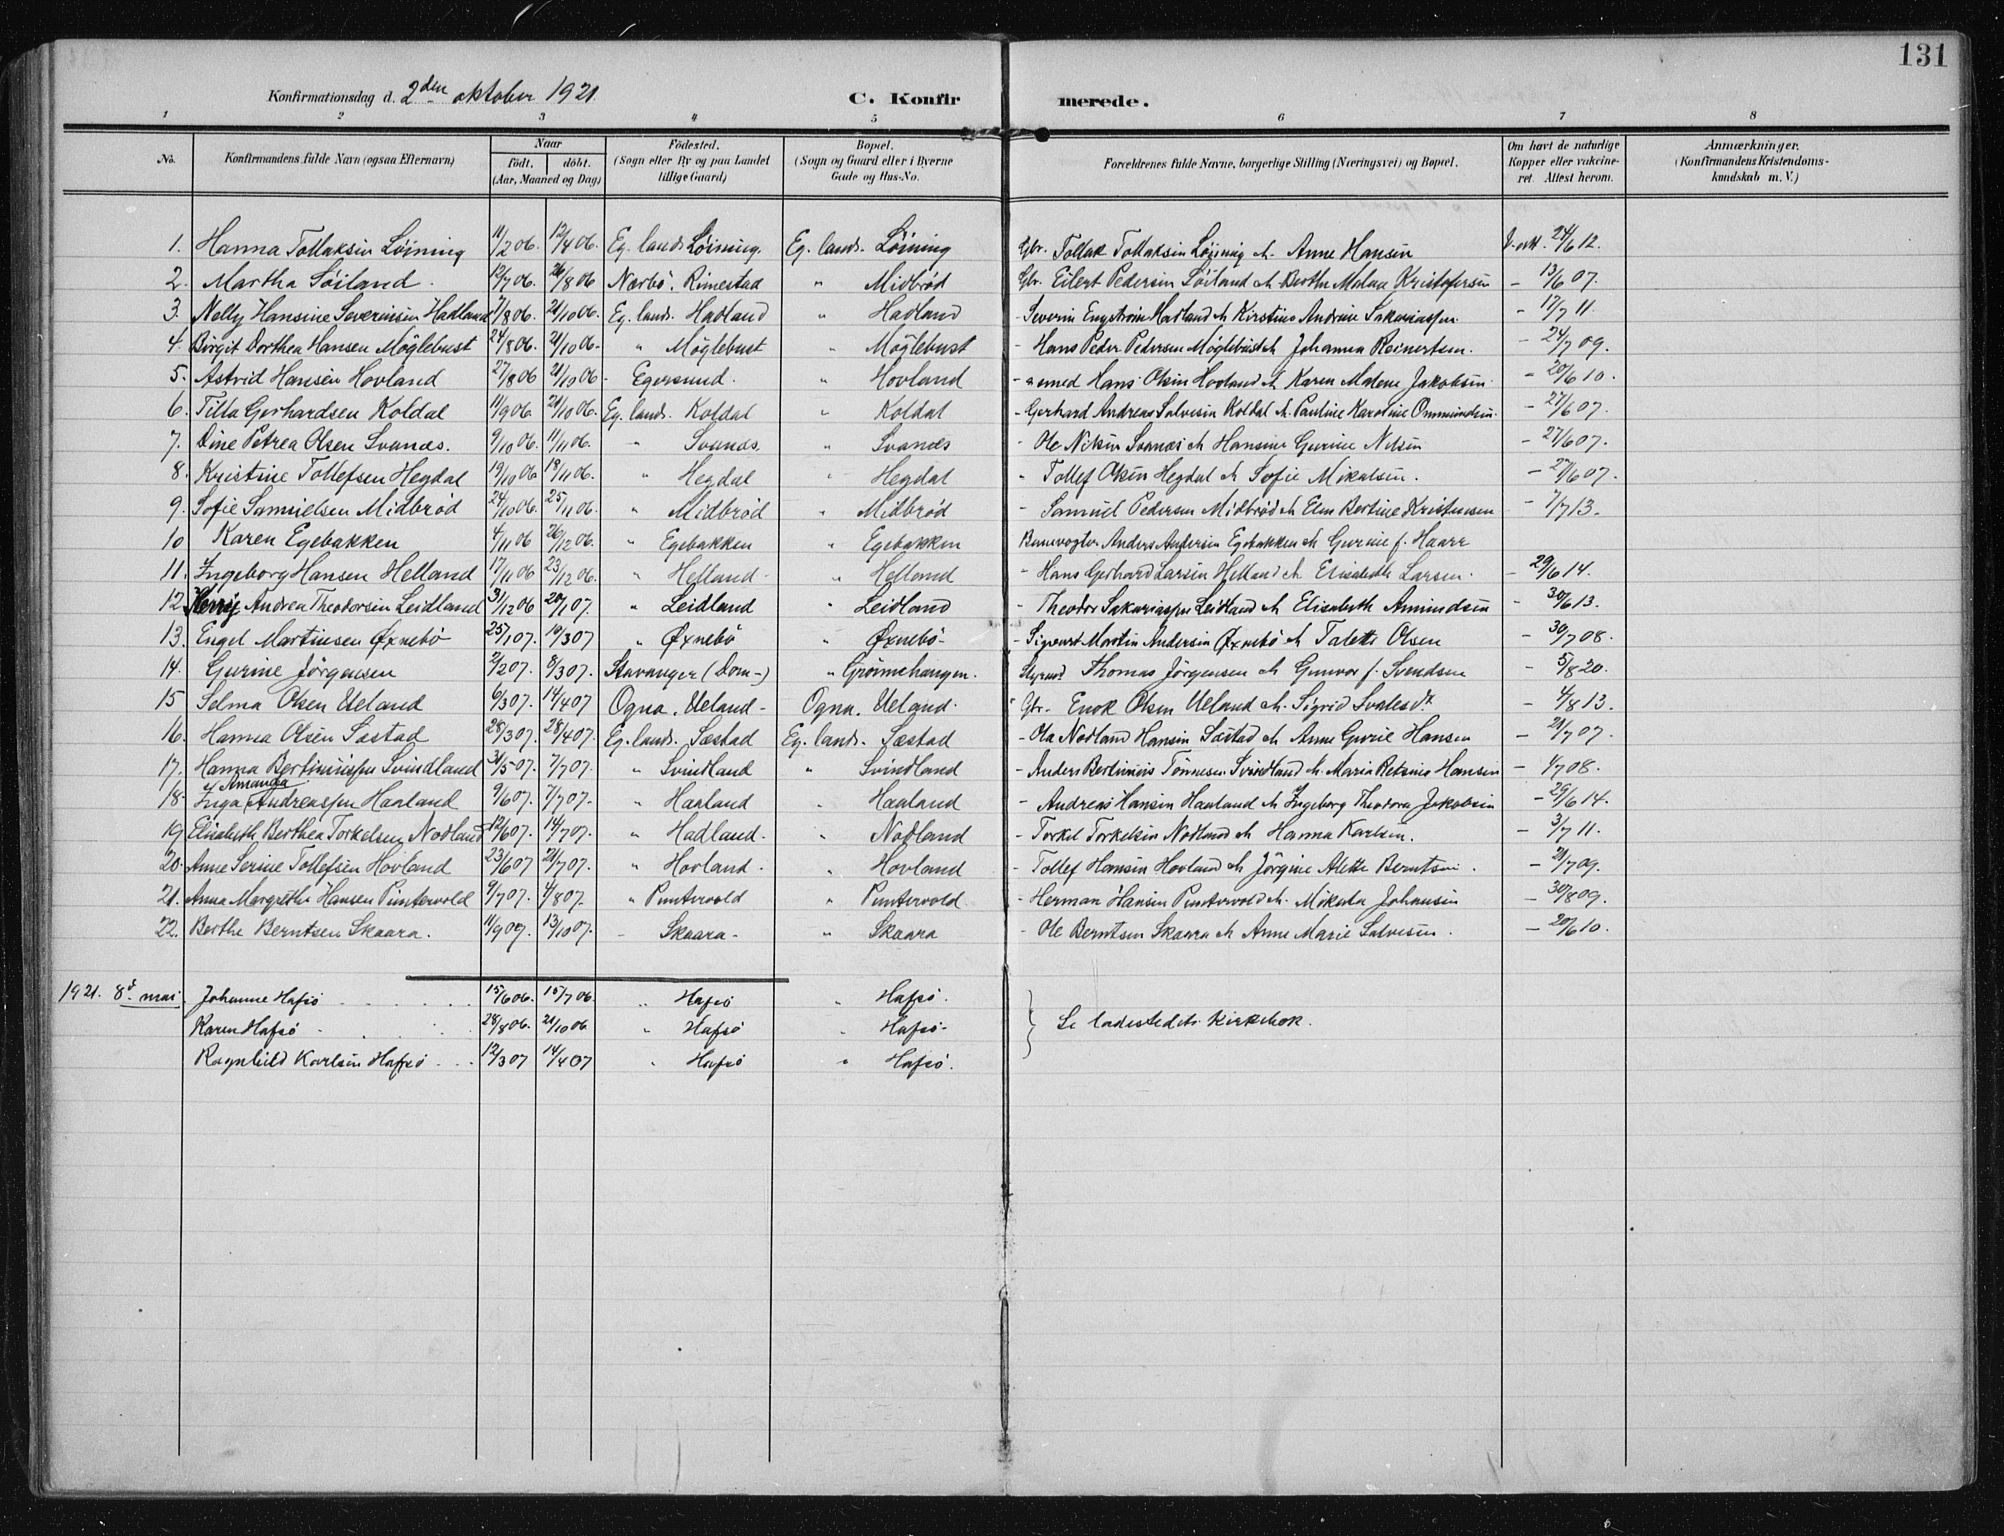 131
Konfirmationsdag d. 2den oktober 1921.
C. Konfirmerede.
1 2 3 4 5 6 7 8
No. Konfirmandens fulde Navn (ogsaa Efternavn) Naar født, døbt. (Aar, Maaned og Dag) Fødested. (Sogn eller By og paa Landet tillige Gaard) Bopæl. (Sogn og Gaard eller i Byerne Gade og Hus-No. Forældrenes fulde Navne, borgerlige Stilling (Næringsvei) og Bopæl. Om havt de naturlige Kopper eller vakcineret. Attest herom. Anmærkninger. (Konfirmandens Kristendomskundskab m. V.)
1. Hanna Tollaksen Løining 11/2 06. 12/4 06. Eg. lands. Løining. Eg. lands. Løining Gbr. Tollak Tollaksen Løining & Anne Hansen 24/6 12.
2. Martha Søiland. 12/7 06. 26/8 06 Nærbø. Rimestad " Midbrød Gbr. Eilert Pedersen Søiland & Berthe Malena Kristofersen - 13/6 07.
3. Nelly Hansine Severinsen Hadland 7/8 06. 21/10 06. Eg. lands. Hadland " Hadland - Severin Engström Hadland & Kirstine Andrine Sakariassen. - 17/7 11.
4. Birgit Dorthea Hansen Møglebust 24/8 06. 21/10 06. " Møglebust " Møglebust - Hans Peder Pedersen Møglebust & Johanna Reinertsen. - 24/7 09.
5. Astrid Hansen Hovland 27/8 06 21/10 06 - Egersund. " Hovland - smed Hans Olsen Hovland & Karen Malene Jakobsen. - 20/6 10.
6. Tilla Gerhardsen Koldal 11/9 06 21/10 06. Eg. lands. Koldal " Koldal - Gerhard Andreas Salvesen Koldal & Pauline Karoline Ommundsen. - 27/6 07.
7. Dine Petrea Olsen Svanæs. 9/10 06. 11/11 06. - Svanæs. " Svanæs - Ole Nilsen Svanæs & Hansine Gurine Nilsen - 27/6 07.
8. Kristine Tollefsen Hegdal 19/10 06 18/11 06. " Hegdal " Hegdal - Tollef Olsen Hegdal & Sofie Mikalsen. - 27/6 07.
9. Sofie Samuelsen Midbrød 24/10 06. 25/11 06. " Midbrød " Midbrød - Samuel Pedersen Midbrød & Elen Bertine Kristensen - 7/7 13.
10 Karen Egebakken 4/11 06 26/12 06. " Egebakken " Egebakken Banevogter Anders Andersen Egebakken & Gurine f. Haarr
11. Ingeborg Hansen Helland 17/11 06 23/12 06. " Helland - " Helland - Hans Gerhard Larsen Helland & Elisabeth Larsen. - 29/6 14.
12 Andrea Theodorsen Leidland 31/12 06 20/1 07. " Leidland " Leidland - Theodor Sakariassen Leidland & Elisabeth Amundsen - 30/6 13.
13. Engel Martinsen Øxnebø 25/1 07. 10/3 07 " Øxnebø " Øxnebø - - Sigvart Martin Andersen Øxnebø & Talette Olsen - 30/7 08.
14. Gurine Jørgensen 2/2 07. 8/3 07. Stavanger (Dom-) " Grønnehaugen. Thomas Jørgensen & Gunvor f. Svendsen - 5/8 20.
15 Selma Olsen Ueland 6/3 07. 14/4 07 Ogna. Ueland - Ogna. Ueland. Gbr. Enok Olsen Ueland & Sigrid Svalesdt - 4/8 13.
16. Hanna Olsen Sæstad 28/3 07. 28/4 07 Eg. lands. Sæstad Eg. lands. Sæstad - Ola Nodland Hansen Sæstad & Anne Gurie Hansen - 21/7 07.
17. Hanna Bertinussen Svindland 31/5 07. 7/7 07. " Svindland " Svindland - Anders Bertinius Tønnesen Svindland & Maria Retsine Hansen - 1/7 08.
18. Inga Amanda Andreassen Haaland 9/6 07. 7/7 07. " Haaland " Haaland - Andreas Hansen Haaland & Ingeborg Theodora Jakobsen - 29/6 14.
19 Elisabeth Berthea Torkelsen Nodland 12/6 07. 14/7 07. " Hadland. " Nodland - Torkel Torkelsen Nodland & Hanna Karlsen. - 3/7 11.
20. Anne Serine Tollefsen Hovland 23/6 07 21/7 07. " Hovland. " Hovland - Tollef Hansen Hovland & Jørgine Alette Berntsen. - 21/7 09.
21. Anna Margrethe Hansen Puntervold 9/7 07. 4/8 07. " Puntervold " Puntervold. - Herman Hansen Puntervold & Mikala Johansen - 30/8 09.
22. Berthe Berntsen Skaara. 11/9 07. 13/10 07. - Skaara - " Skaara - Ole Berntsen Skaara & Anne Marie Salvesen. - 20/6 10.
1921. 8d mai. Johanne Hafsø 15/6 06. 15/7 06. " Hafsø " Hafsø.
Karen Hafsø 28/8 06. 21/10 06 " Hafsø " Hafsø - Se ladestedets Kirkebok.
Ragnhild Karlsen Hafsø 12/3 07 14/4 07 " Hafsø " Hafsø.